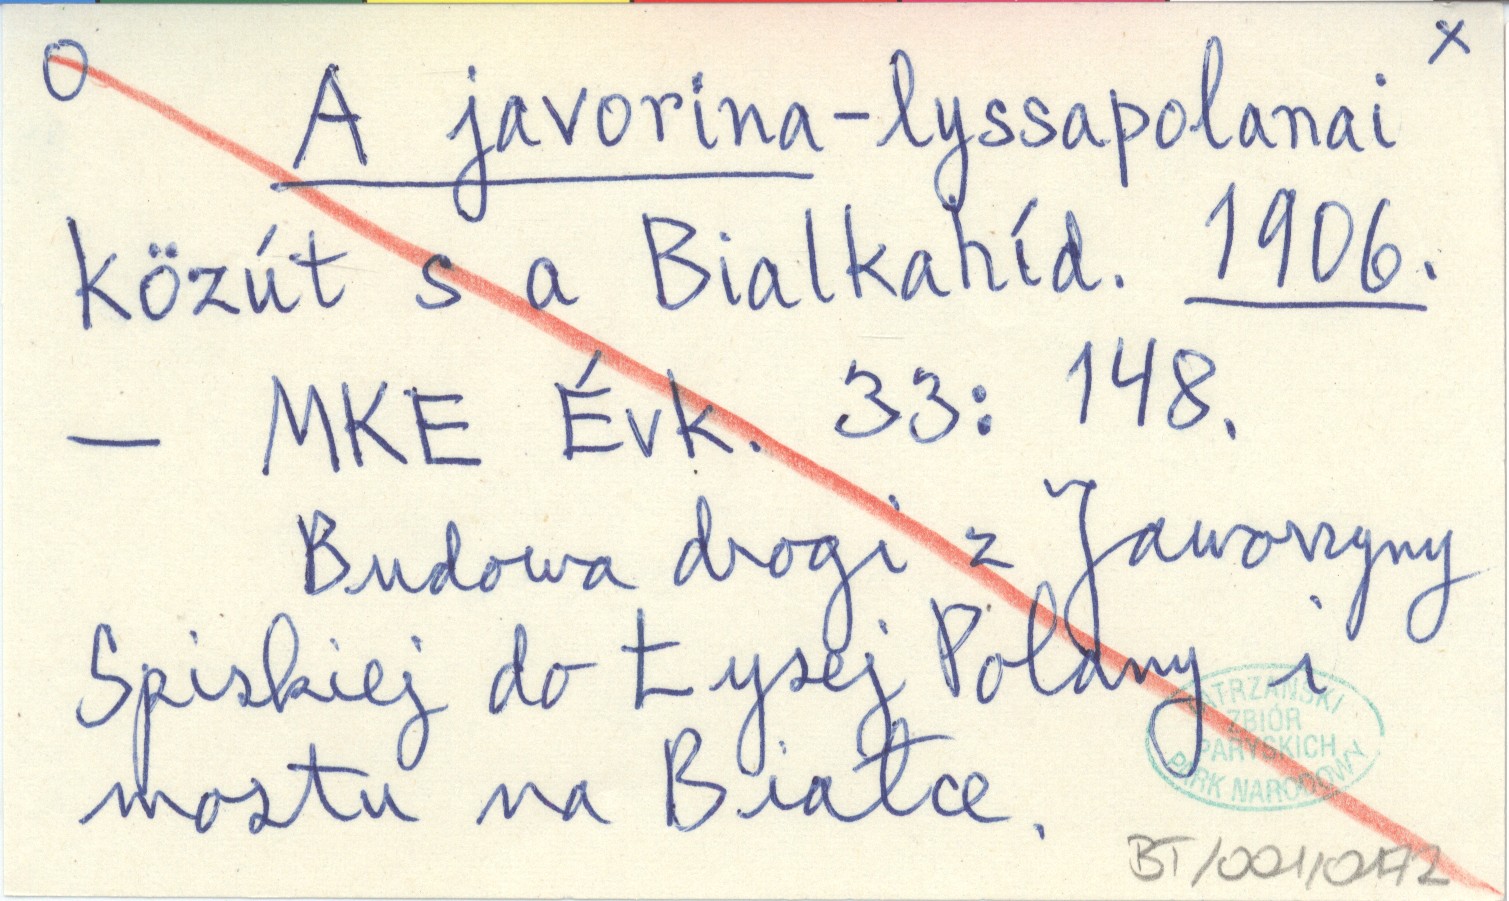 O x
A javorina-lyssapolanai
közút s a Bialkahíd. 1906.
— MKE Évk. 33: 148.
Budowa drogi z Jaworzyny
Spiskiej do Łysej Polany i
mostu na Białce.
TATRZAŃSKI
ZBIÓR
PARYSKICH
PARK NARODOWY
BT/001/0172